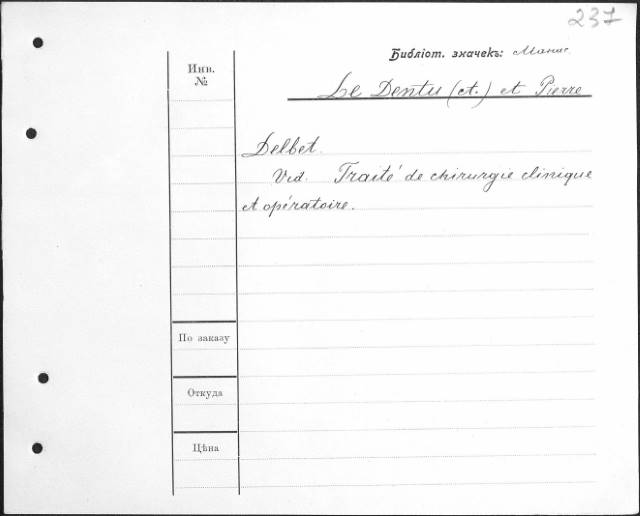 237
Библіот. значекъ:
Инв.
№
Le Dentu (A.) et Pierre
Delbet.
Vid. Traité de chirurgie clinique
et opératoire.
По заказу
Откуда
Цѣна